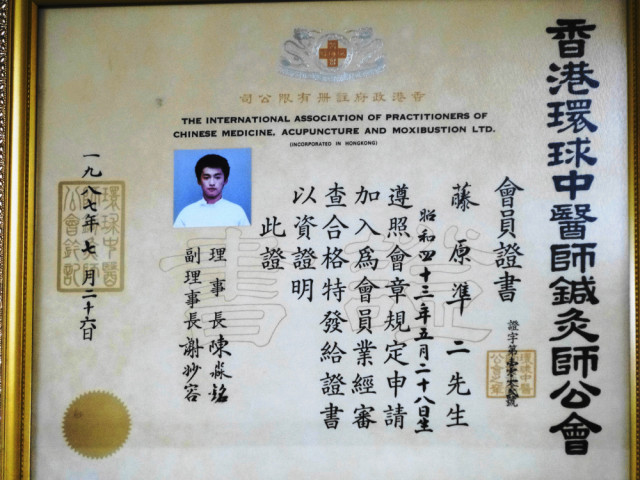 香港環球中醫師鍼灸師公會
司公限有册註府政港香
THE INTERNATIONAL ASSOCIATION OF PRACTITIONERS OF
CHINESE MEDICINE, ACUPUNCTURE AND MOXIBUSTION LTD.
(INCORPORATED IN HONGKONG)
會員證書
證字第
號
藤原準二先生
昭和四十三年五月二十八日生
遵照會章規定申請
加入爲會員業經審
查合格特發給證書
以資證明
此證
理事長陳淼銘
副理事長謝妙容
一九八七年七月二十六日
環球中醫
公會鈐記
環球中醫
書證